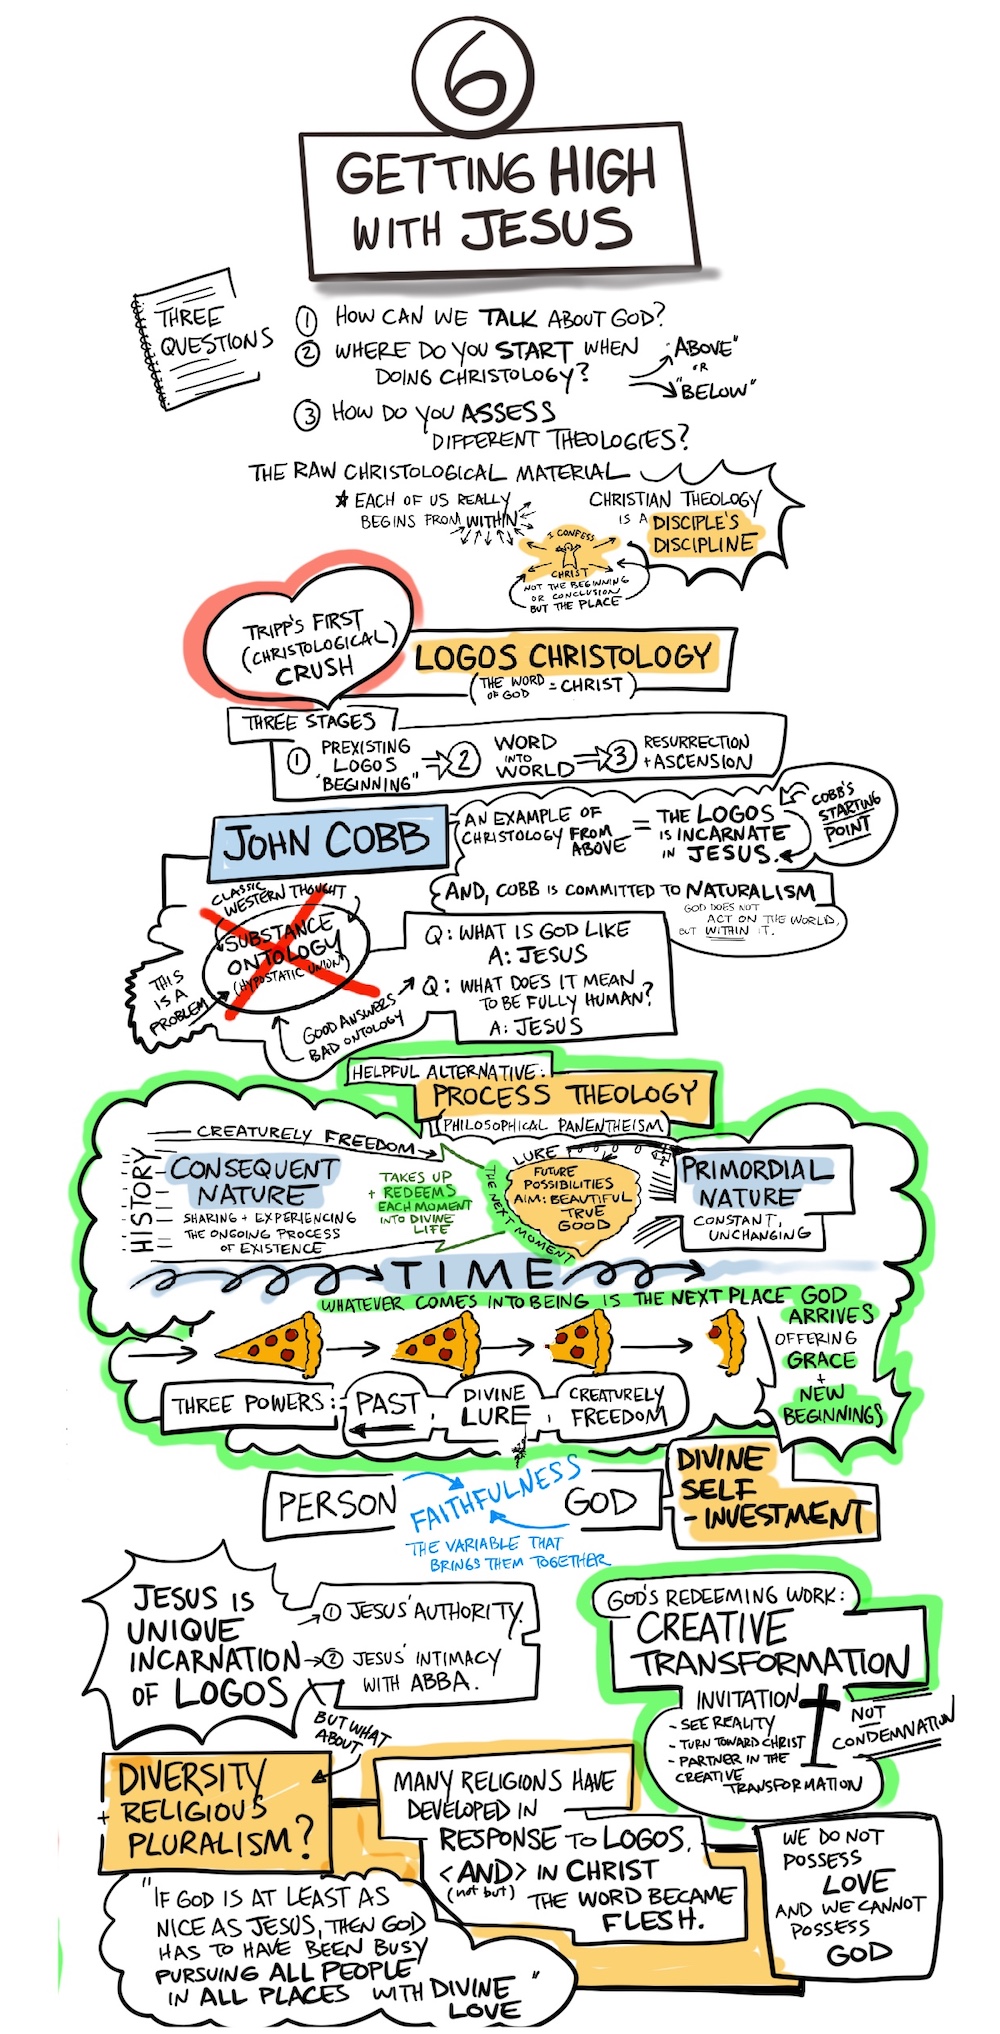 6
GETTING HIGH
WITH JESUS
THREE
QUESTIONS
1 HOW CAN WE TALK ABOUT GOD?
2 WHERE DO YOU START WHEN
DOING CHRISTOLOGY?
"ABOVE"
OR
"BELOW"
3 HOW DO YOU ASSESS
DIFFERENT THEOLOGIES?
THE RAW CHRISTOLOGICAL MATERIAL
★ EACH OF US REALLY
BEGINS FROM WITHIN
CHRISTIAN THEOLOGY
IS A DISCIPLE'S
DISCIPLINE
I CONFESS
CHRIST
NOT THE BEGINNING
OR CONCLUSION
BUT THE PLACE
TRIPP'S FIRST
(CHRISTOLOGICAL)
CRUSH
LOGOS CHRISTOLOGY
(THE WORD
OF GOD = CHRIST)
THREE STAGES
1 PREXISTING
LOGOS
"BEGINNING"
2 WORD
INTO
WORLD
3 RESURRECTION
+ ASCENSION
JOHN COBB
AN EXAMPLE OF
CHRISTOLOGY FROM
ABOVE
= THE LOGOS
IS INCARNATE
IN JESUS.
COBB'S
STARTING
POINT
AND, COBB IS COMMITTED TO NATURALISM
GOD DOES NOT
ACT ON THE WORLD,
BUT WITHIN IT.
CLASSIC
WESTERN THOUGHT
SUBSTANCE
ONTOLOGY
(HYPOSTATIC UNION)
THIS
IS A
PROBLEM
GOOD ANSWERS
BAD ONTOLOGY
Q: WHAT IS GOD LIKE
A: JESUS
Q: WHAT DOES IT MEAN
TO BE FULLY HUMAN?
A: JESUS
HELPFUL ALTERNATIVE:
PROCESS THEOLOGY
(PHILOSOPHICAL PANENTHEISM)
HISTORY
CREATURELY FREEDOM
CONSEQUENT
NATURE
SHARING + EXPERIENCING
THE ONGOING PROCESS
OF EXISTENCE
TAKES UP
+ REDEEMS
EACH MOMENT
INTO DIVINE
LIFE
THE NEXT MOMENT
LURE
FUTURE
POSSIBILITIES
AIM: BEAUTIFUL
TRUE
GOOD
PRIMORDIAL
NATURE
CONSTANT,
UNCHANGING
TIME
WHATEVER COMES INTO BEING IS THE NEXT PLACE GOD
ARRIVES
OFFERING
GRACE
+
NEW
BEGINNINGS
THREE POWERS:
PAST
DIVINE
LURE
CREATURELY
FREEDOM
PERSON
FAITHFULNESS
GOD
THE VARIABLE THAT
BRINGS THEM TOGETHER
DIVINE
SELF
-INVESTMENT
JESUS IS
UNIQUE
INCARNATION
OF LOGOS
1 JESUS' AUTHORITY.
2 JESUS' INTIMACY
WITH ABBA.
GOD'S REDEEMING WORK:
CREATIVE
TRANSFORMATION
INVITATION
- SEE REALITY
- TURN TOWARD CHRIST
- PARTNER IN THE
CREATIVE
TRANSFORMATION
NOT
CONDEMNATION
BUT WHAT
ABOUT
DIVERSITY
+ RELIGIOUS
PLURALISM?
MANY RELIGIONS HAVE
DEVELOPED IN
RESPONSE TO LOGOS,
<AND> IN CHRIST
(not but) THE WORD BECAME
FLESH.
WE DO NOT
POSSESS
LOVE
AND WE CANNOT
POSSESS
GOD
"IF GOD IS AT LEAST AS
NICE AS JESUS, THEN GOD
HAS TO HAVE BEEN BUSY
PURSUING ALL PEOPLE
IN ALL PLACES WITH DIVINE
LOVE"